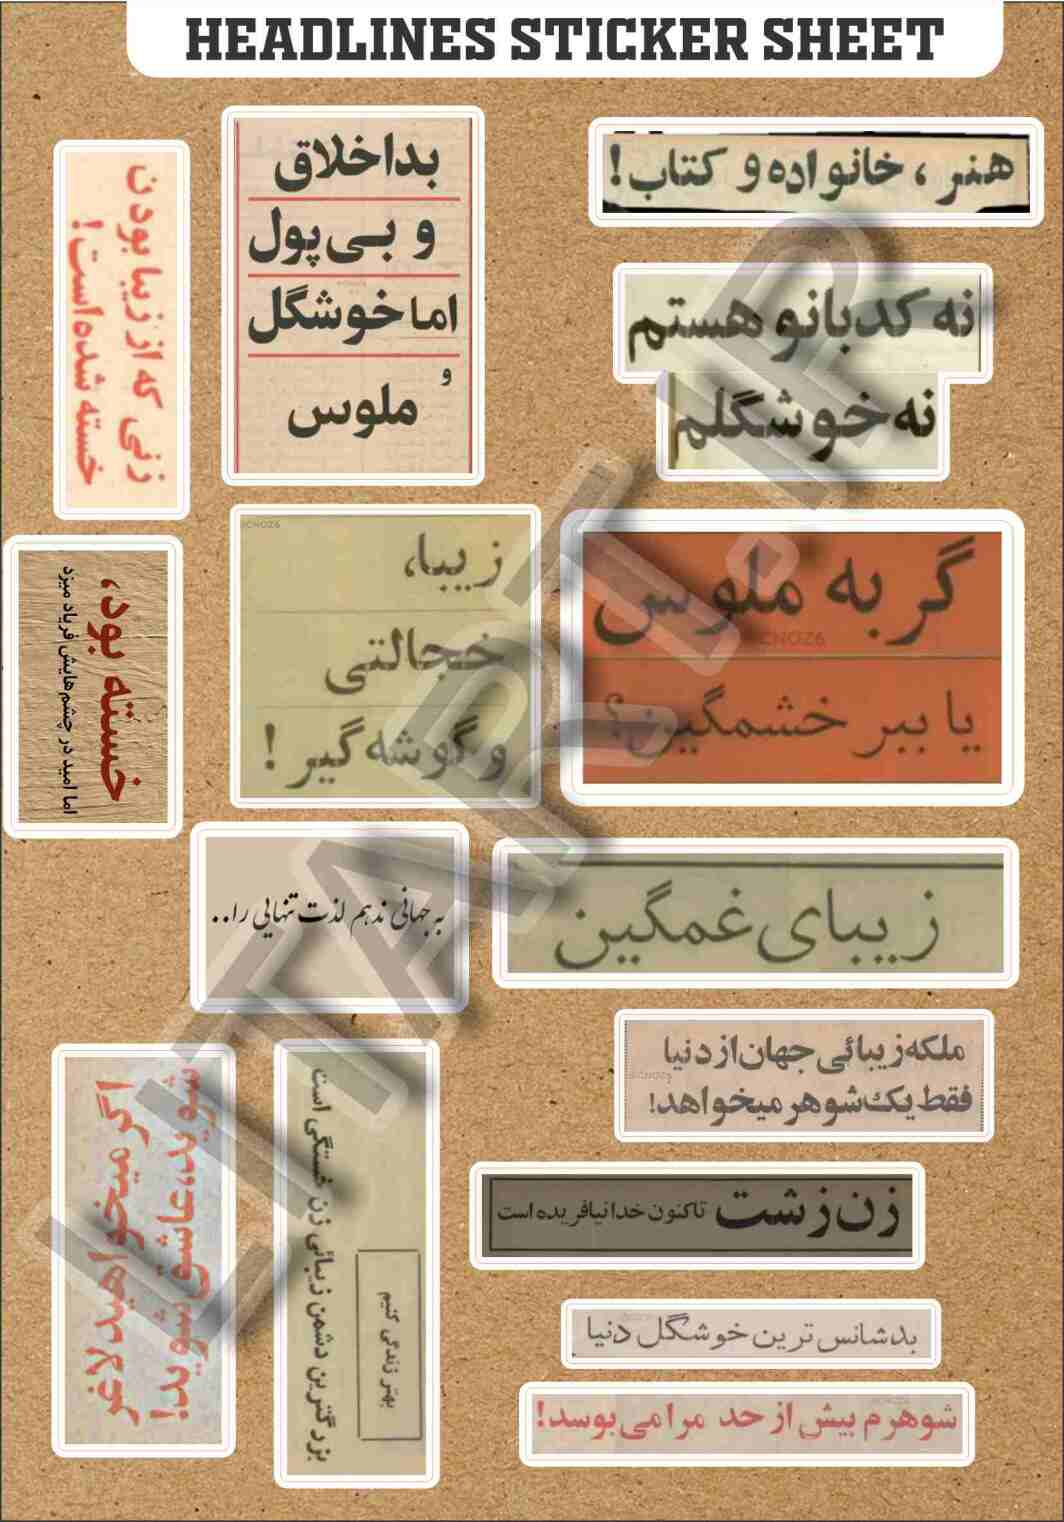 HEADLINES STICKER SHEET
هنر ، خانواده و کتاب!
بداخلاق
و بی‌پول
اما خوشگل
و
ملوس
زنی که از زیبا بودن
خسته شده است!
نه کدبانو هستم
نه خوشگلم
زیبا،
خجالتی
و گوشه‌گیر !
گربه ملوس
یا ببر خشمگین؟
خسته بود،
اما امید در چشم‌هایش فریاد میزد
به جهانی ندهم لذت تنهایی را..
زیبای غمگین
ملکه زیبائی جهان از دنیا
فقط یک شوهر میخواهد!
اگر میخواهید لاغر
شوید، عاشق شوید!
بزرگترین دشمن زیبائی زن خستگی است
بهتر زندگی کنیم
زن زشت تاکنون خدا نیافریده است
بدشانس ترین خوشگل دنیا
شوهرم بیش از حد مرا می‌بوسد!
LITART.IR